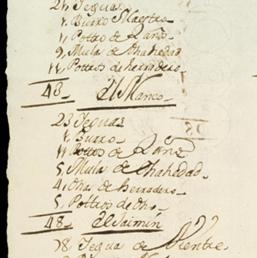 24 Yeguas
1, Burro Maestro
11, Potros de Año
9, Mula de Chahedad
11, Potros de herradero
48 El Manco
23 Yeguas
1, Burro
11, Potros de Año
5, Mula de Chahedad
4, de herradero
5, Potros de
48 El Jaimin
18 Yegua de Vientre